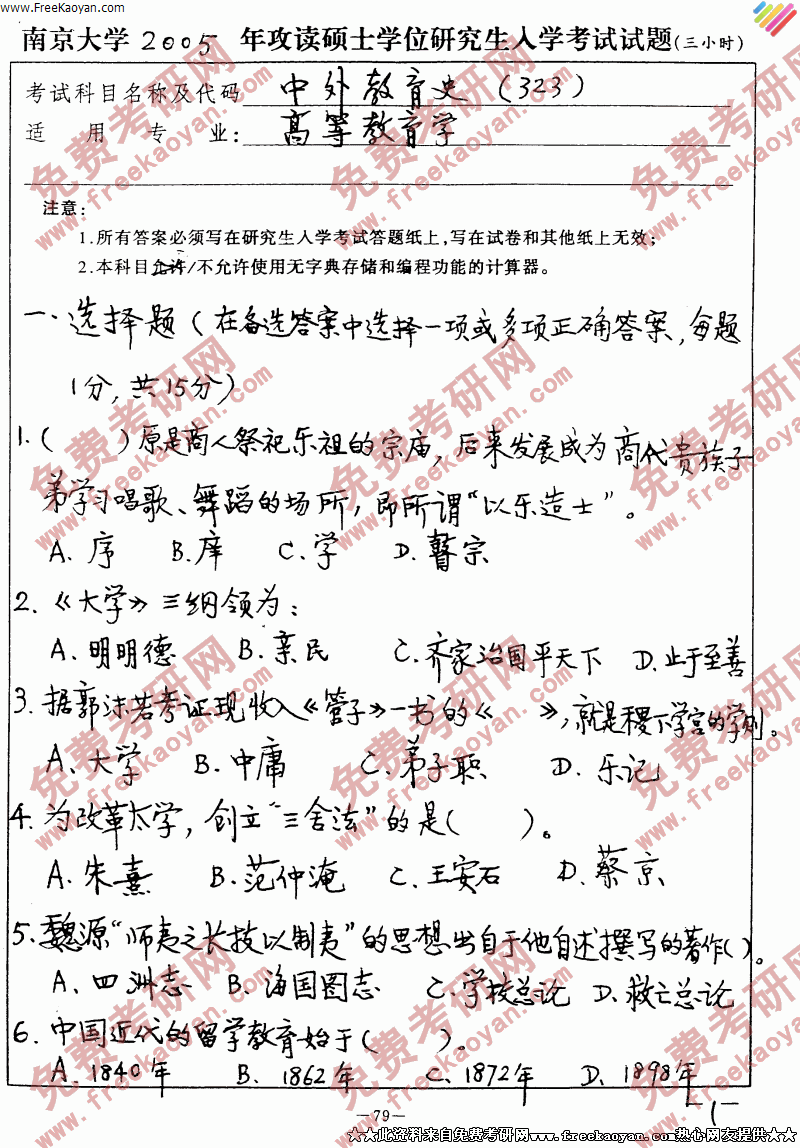 www.FreeKaoyan.com
南京大学 2005 年攻读硕士学位研究生入学考试试题(三小时)
考试科目名称及代码 中外教育史(323)
适用专业: 高等教育学
注意:
1.所有答案必须写在研究生入学考试答题纸上,写在试卷和其他纸上无效;
2.本科目允许/不允许使用无字典存储和编程功能的计算器。
一、选择题(在备选答案中选择一项或多项正确答案,每题
1分,共15分)
1.( )原是商人祭祀乐祖的宗庙,后来发展成为商代贵族子
弟学习唱歌、舞蹈的场所,即所谓“以乐造士”。
A.序 B.庠 C.学 D.瞽宗
2.《大学》三纲领为:
A.明明德 B.亲民 C.齐家治国平天下 D.止于至善
3.据郭沫若考证现收入《管子》一书的《 》,就是稷下学宫的学则。
A.大学 B.中庸 C.弟子职 D.乐记
4.为改革太学,创立“三舍法”的是( )。
A.朱熹 B.范仲淹 C.王安石 D.蔡京
5.魏源“师夷之长技以制夷”的思想出自于他自述撰写的著作( )。
A.四洲志 B.海国图志 C.学校总论 D.救亡总论
6.中国近代的留学教育始于( )。
A.1840年 B.1862年 C.1872年 D.1898年
—79—
-1-
★★此资料来自免费考研网www.freekaoyan.com热心网友提供★★
免费考研网
www.freekaoyan.com